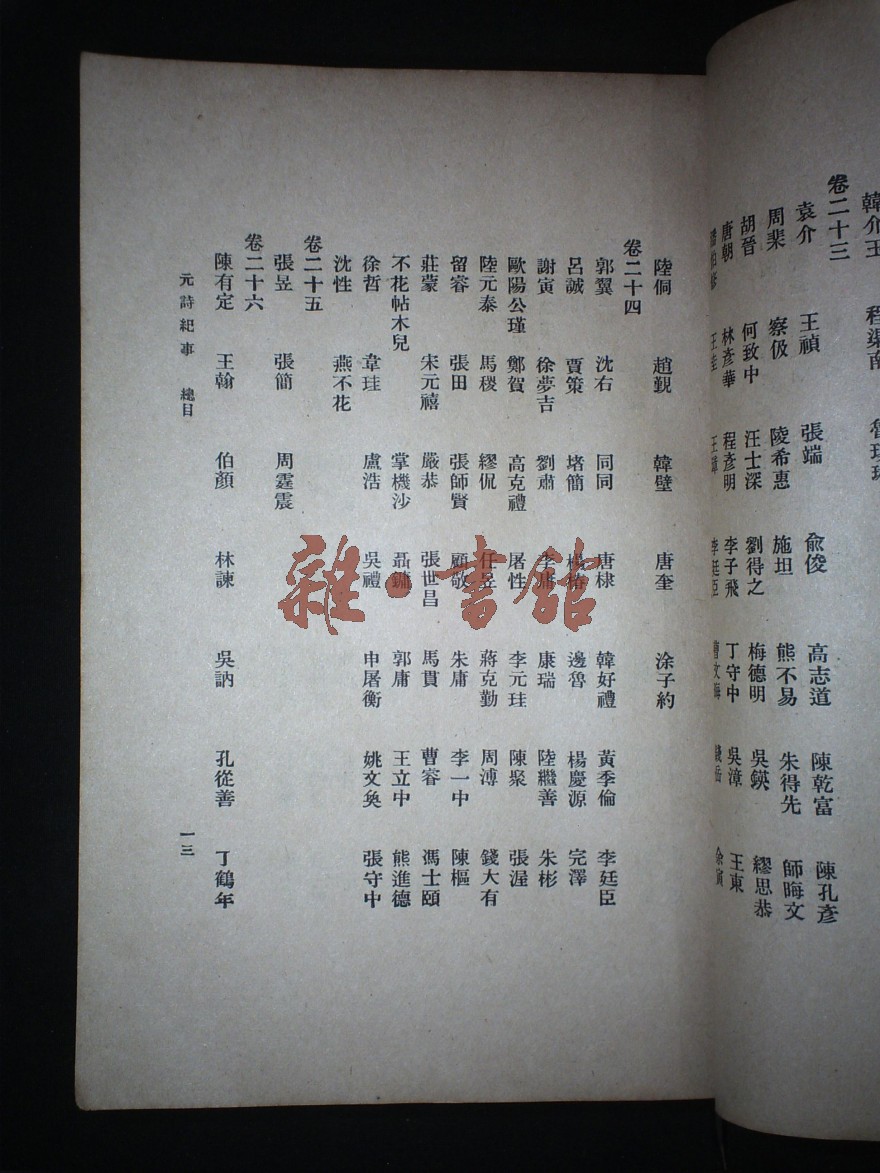 卷二十三
袁介 王禎 張端 兪俊 高志道 陳乾富 陳孔彥
周棐 察伋 陵希惠 施坦 熊不易 朱得先 師晦文
胡晉 何致中 汪士深 劉得之 梅德明 吳鍈 繆思恭
唐朝 林彥華 程彥明 李子飛 丁守中 吳漳 王東
王桂 李廷臣 曹文晦
陸侗 趙覲 韓壁 唐奎 涂子約
卷二十四
郭翼 沈右 同同 唐棣 韓好禮 黃季倫 李廷臣
呂誠 賈策 堵簡 楊椿 邊魯 楊慶源 完澤
謝寅 徐夢吉 劉肅 康瑞 陸繼善 朱彬
歐陽公瑾 鄭賀 高克禮 屠性 李元珪 陳聚 張渥
陸元泰 馬稷 繆侃 任昱 蔣克勤 周溥 錢大有
留睿 張田 張師賢 顧敬 朱庸 李一中 陳樞
莊蒙 宋元禧 嚴恭 張世昌 馬貫 曹睿 馮士頤
不花帖木兒 掌機沙 聶鏞 郭庸 王立中 熊進德
徐哲 韋珪 盧浩 吳禮 申屠衡 姚文奐 張守中
沈性 燕不花
卷二十五
張昱 張簡 周霆震
卷二十六
陳有定 王翰 伯顏 林諫 吳訥 孔從善 丁鶴年
元詩紀事 總目
一三
雜·書館